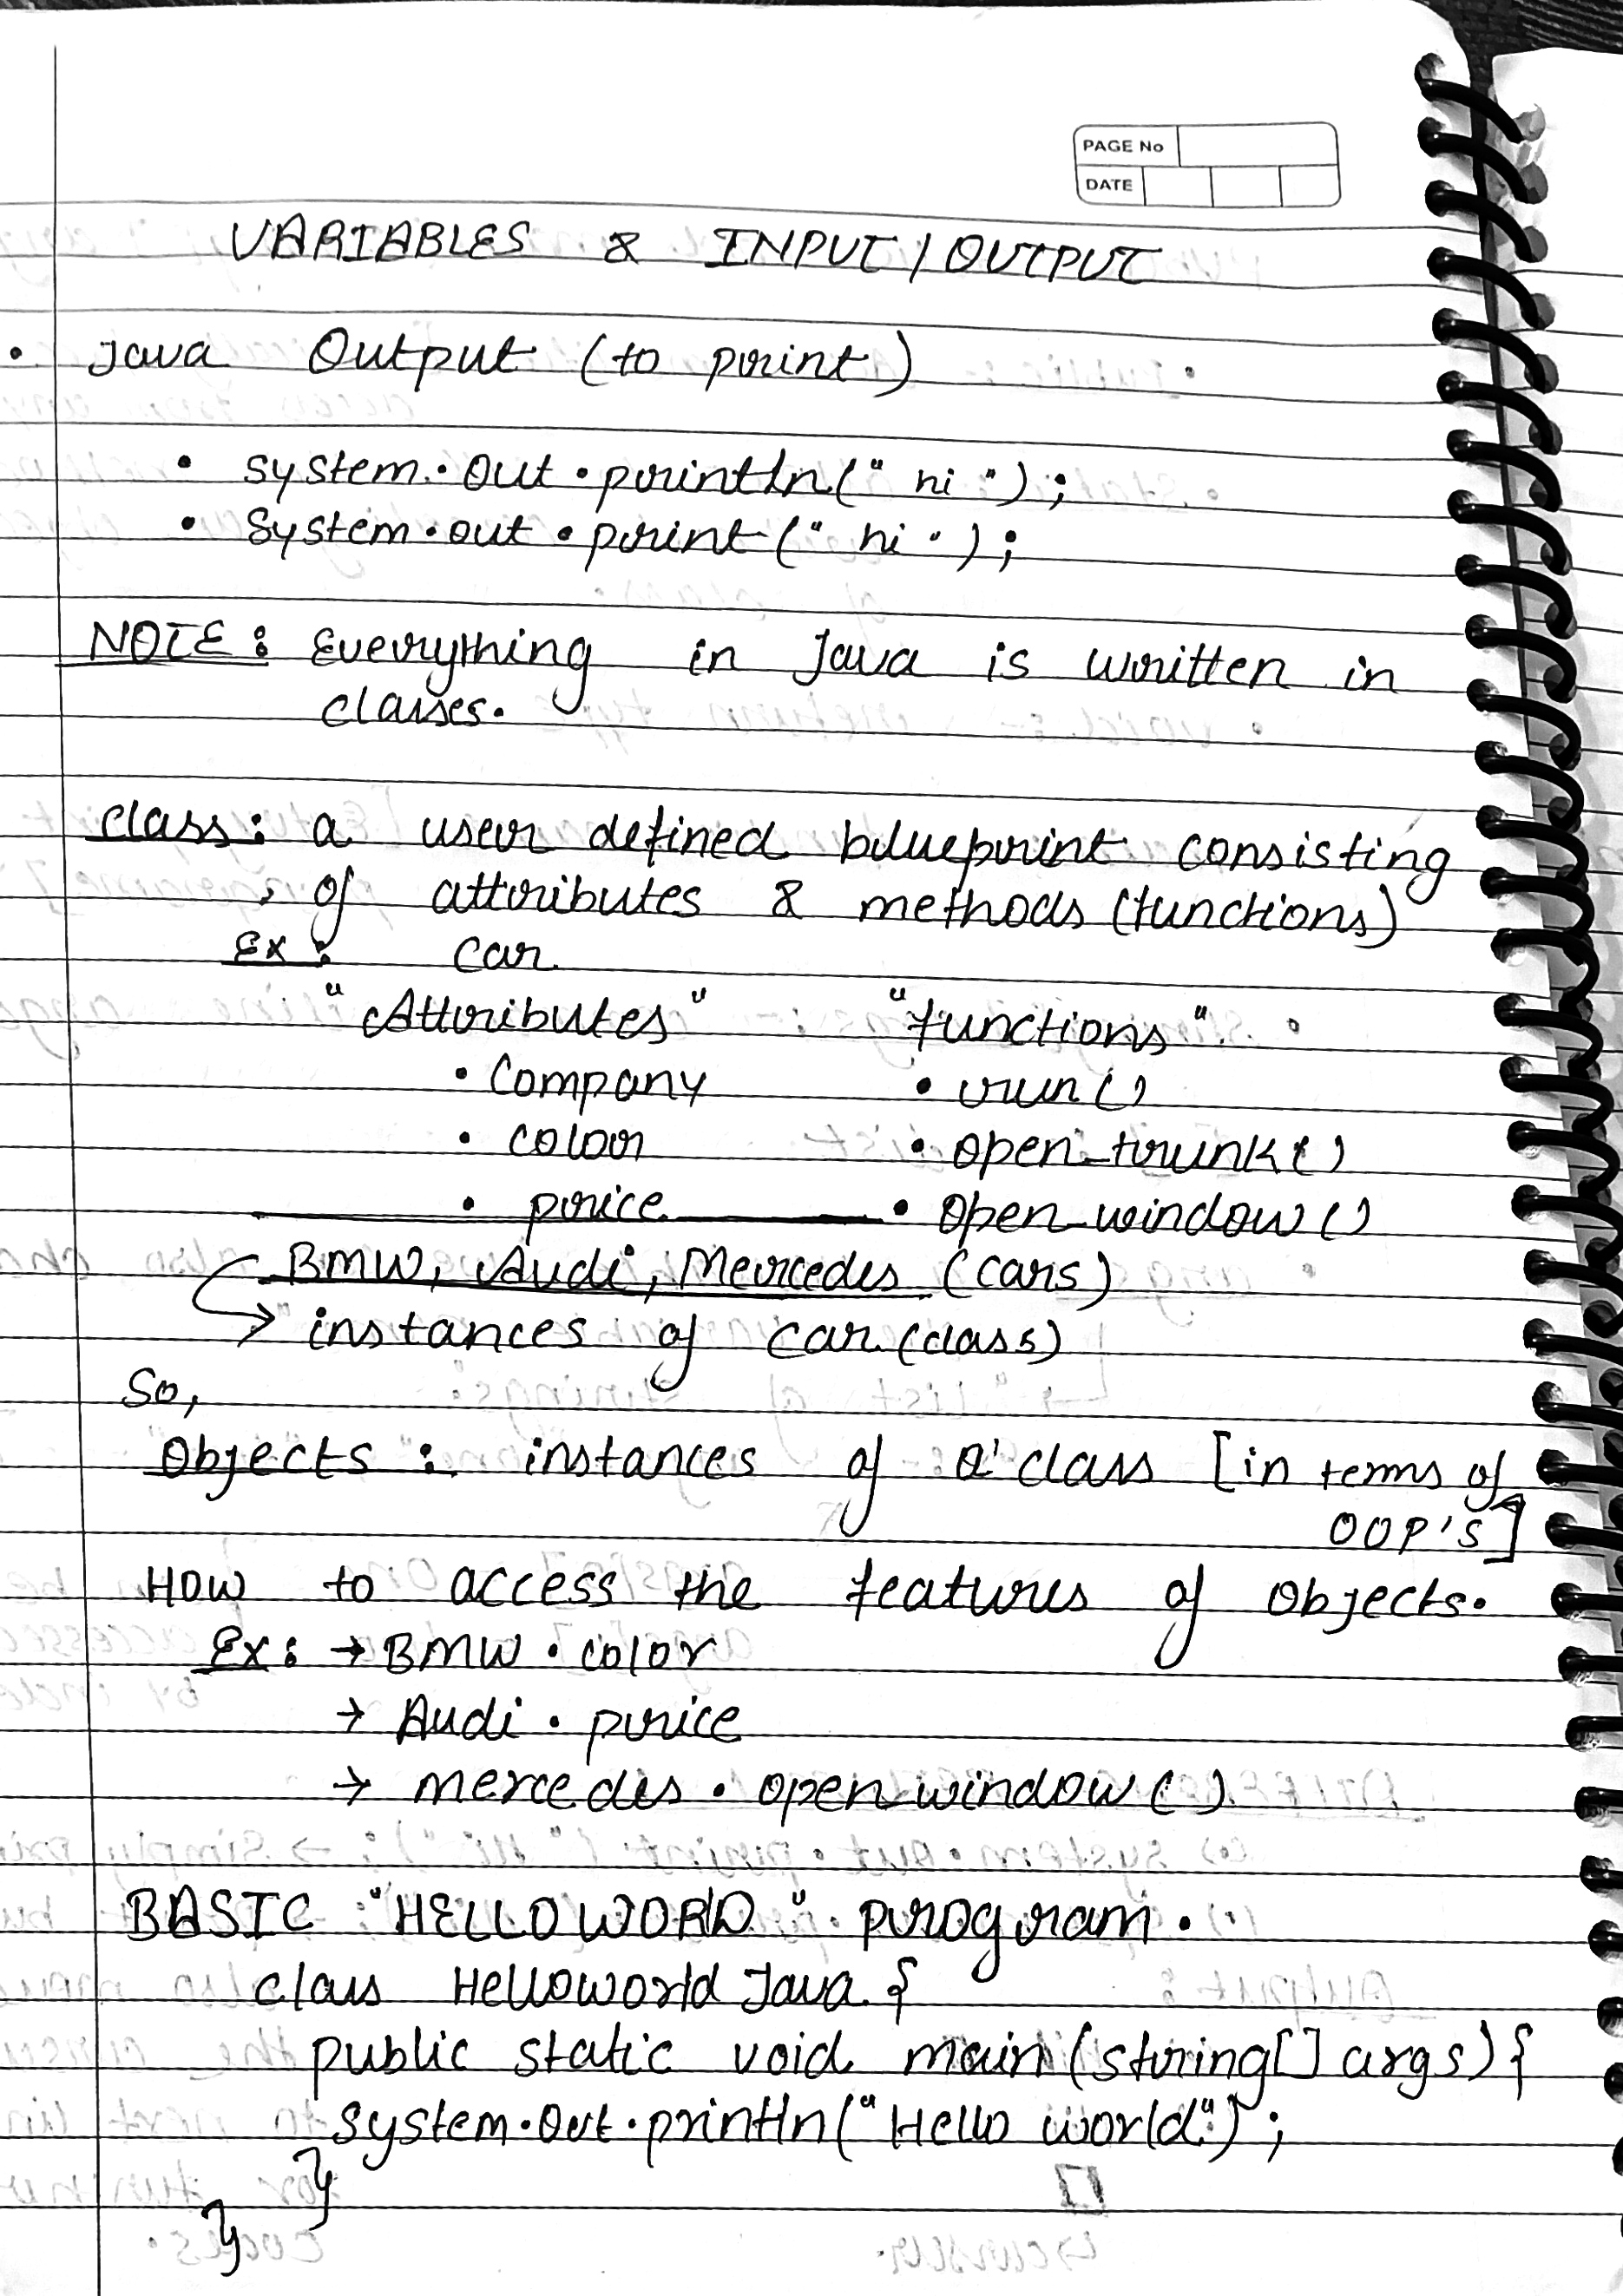 PAGE No
DATE
VARIABLES & INPUT/OUTPUT
• Java Output (to print)
• system.out.println("hi");
• System.out.print("hi");
NOTE: Everything in Java is written in
classes.
class: a user defined blueprint consisting
of attributes & methods (functions)
Ex: Car
"Attributes" "functions"
• Company • run()
• colour • open_trunk()
• price • open_window()
BMW, Audi, Mercedes (cars)
→ instances of car (class)
So,
Objects: instances of a class [in terms of
OOP's]
How to access the features of objects.
Ex: → BMW.color
→ Audi.price
→ mercedes.open_window()
BASIC "HELLO WORD" program.
class HelloworldJava {
public static void main(string[] args){
system.out.println("Hello world");
}
}